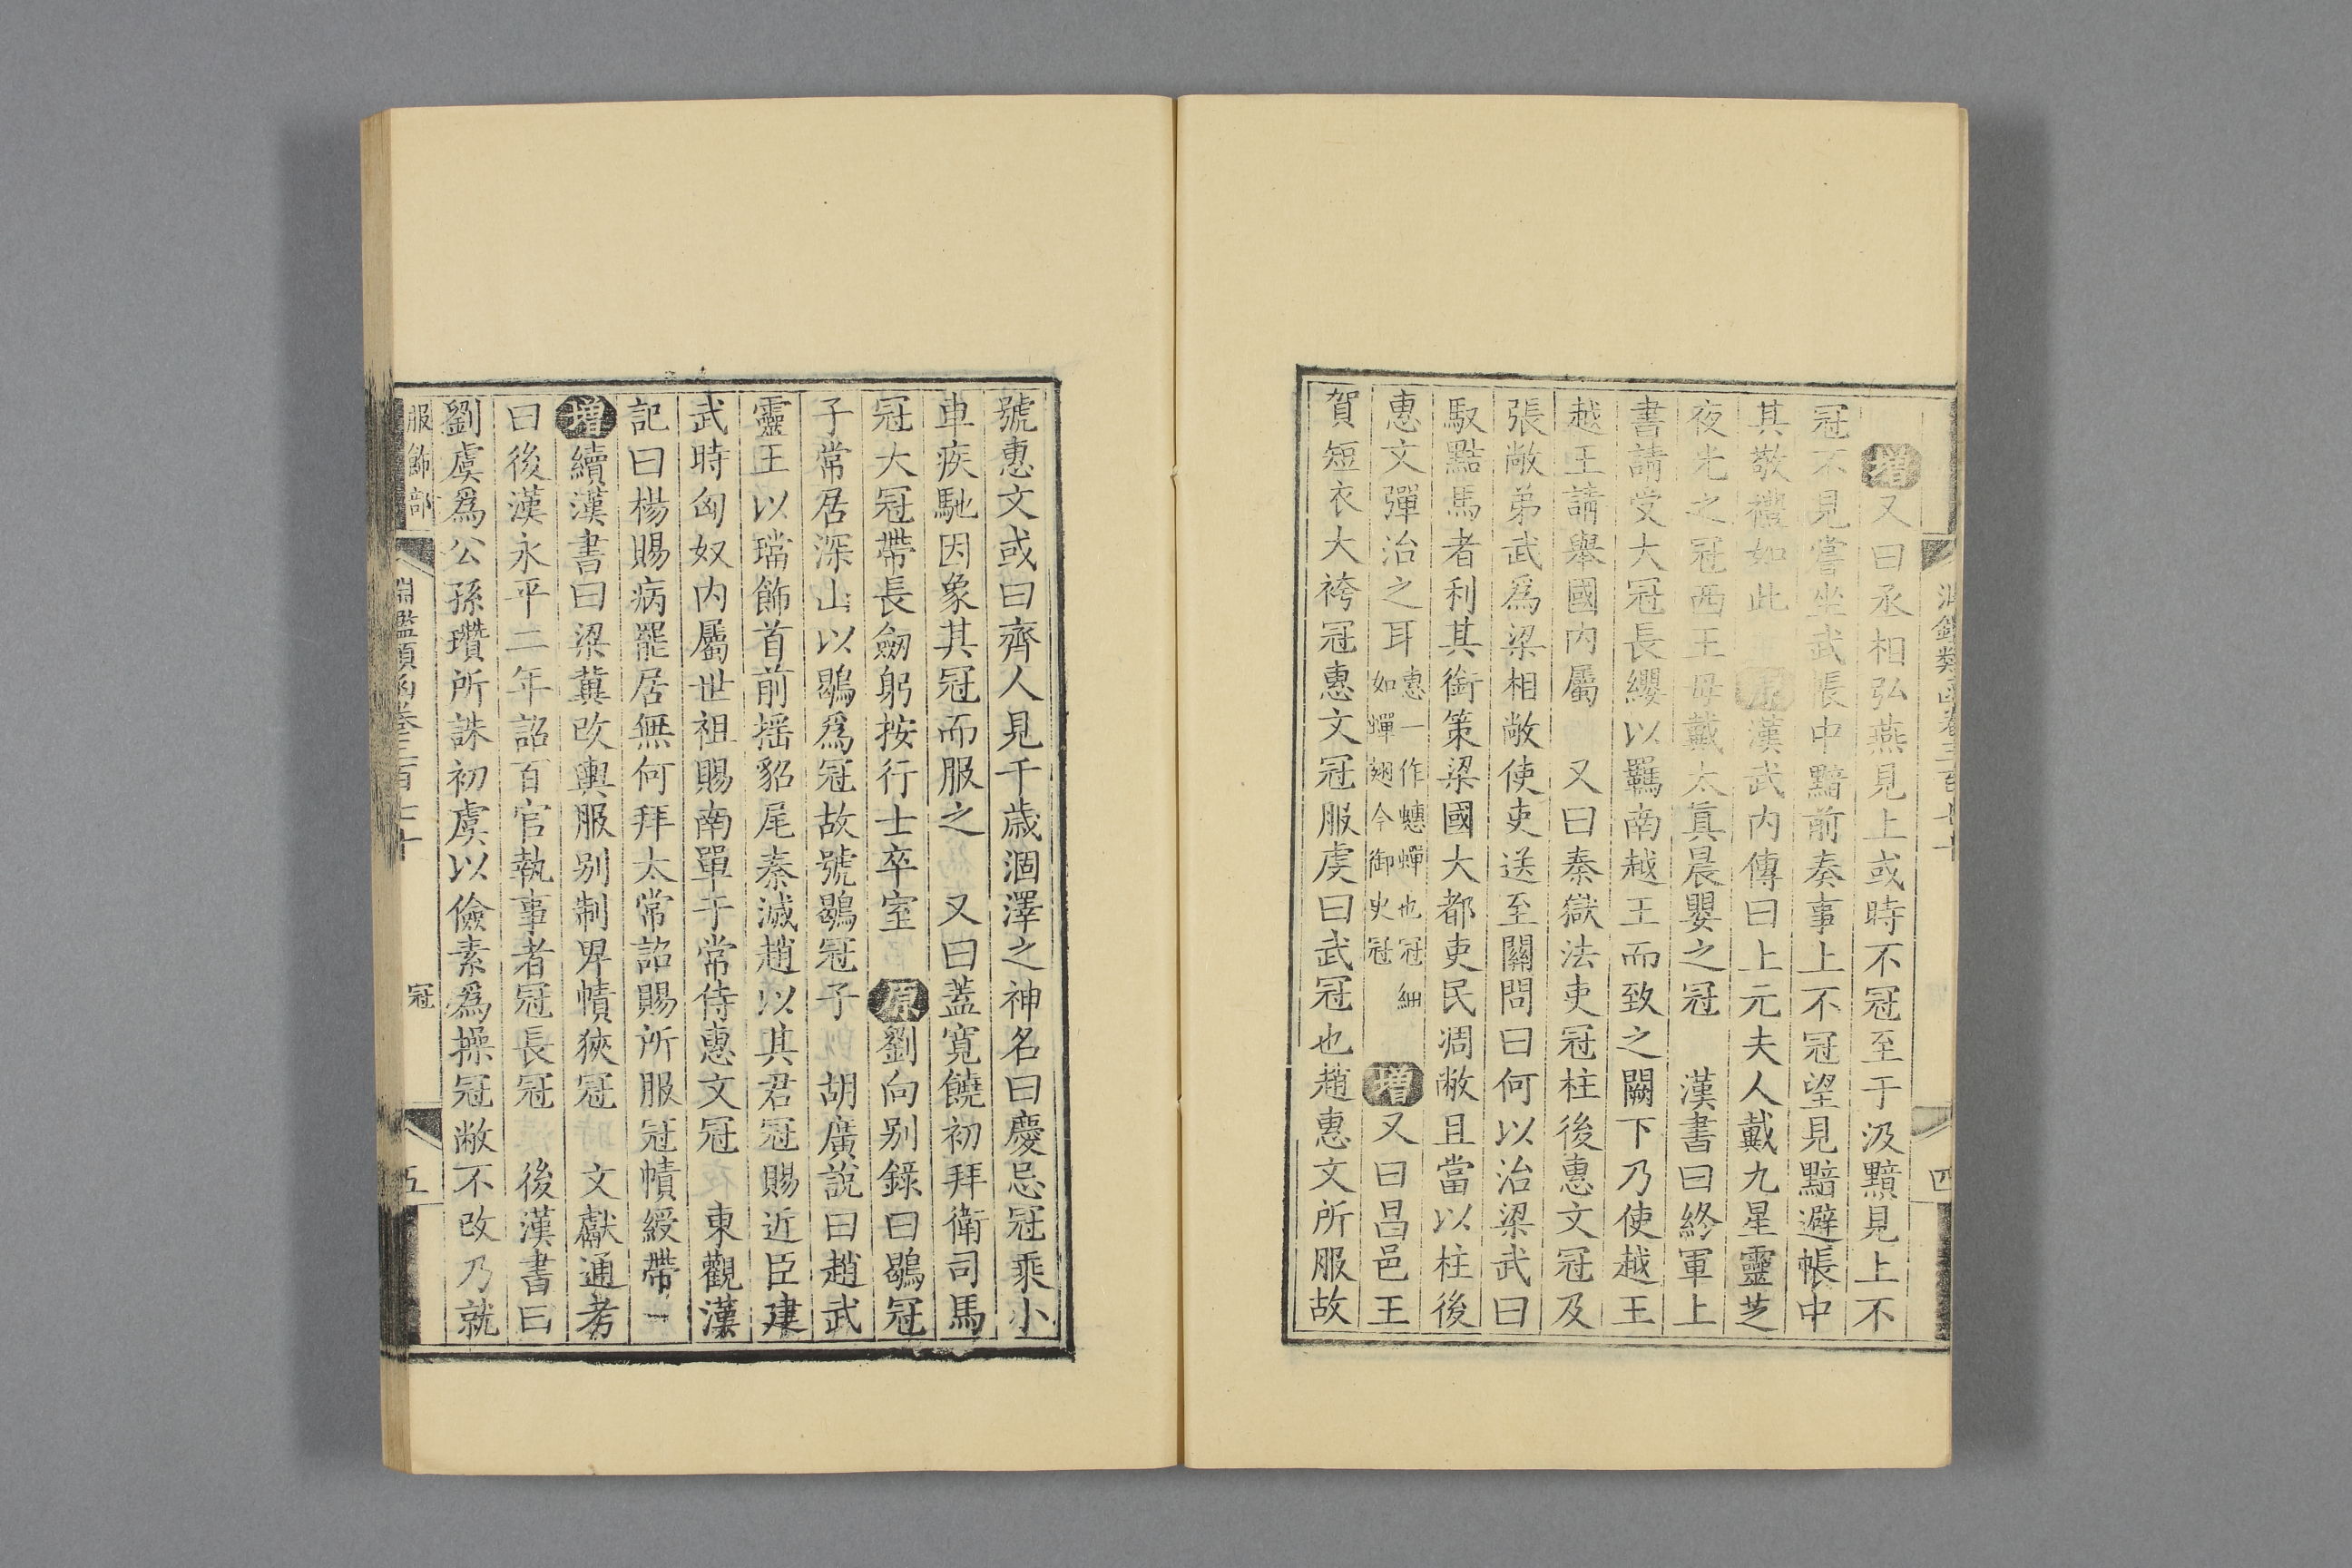 淵鑑類函卷三百七十
四
增又曰丞相弘燕見上或時不冠至于汲黯見上不
冠不見嘗坐武帳中黯前奏事上不冠望見黯避帳中
其敬禮如此 原漢武內傳曰上元夫人戴九星靈芝
夜光之冠西王母戴太真晨嬰之冠 漢書曰終軍上
書請受大冠長纓以羈南越王而致之闕下乃使越王
越王請舉國內屬 又曰秦獄法吏冠柱後惠文冠及
張敞弟武為梁相敞使吏送至關問曰何以治梁武曰
馭黠馬者利其銜策梁國大都吏民凋敝且當以柱後
惠文彈治之耳惠一作蟪蟬也冠細如蟬翅今御史冠 增又曰昌邑王
賀短衣大袴冠惠文冠服虔曰武冠也趙惠文所服故
號惠文或曰齊人見千歲涸澤之神名曰慶忌冠乘小
車疾馳因象其冠而服之 又曰蓋寬饒初拜衛司馬
冠大冠帶長劒躬按行士卒室 原劉向别錄曰鶡冠
子常居深山以鶡爲冠故號鶡冠子 胡廣說曰趙武
靈王以璫飾首前揺貂尾秦滅趙以其君冠賜近臣建
武時匈奴内屬世祖賜南單于常侍惠文冠 東觀漢
記曰楊賜病罷居無何拜太常詔賜所服冠幘綬帶一
增續漢書曰梁冀改輿服别制卑幘狹冠 文獻通考
曰後漢永平二年詔百官執事者冠長冠 後漢書曰
劉虞爲公孫瓚所誅初虞以儉素爲操冠敝不改乃就
服飾部
淵鑑類函卷三百七十
冠
五